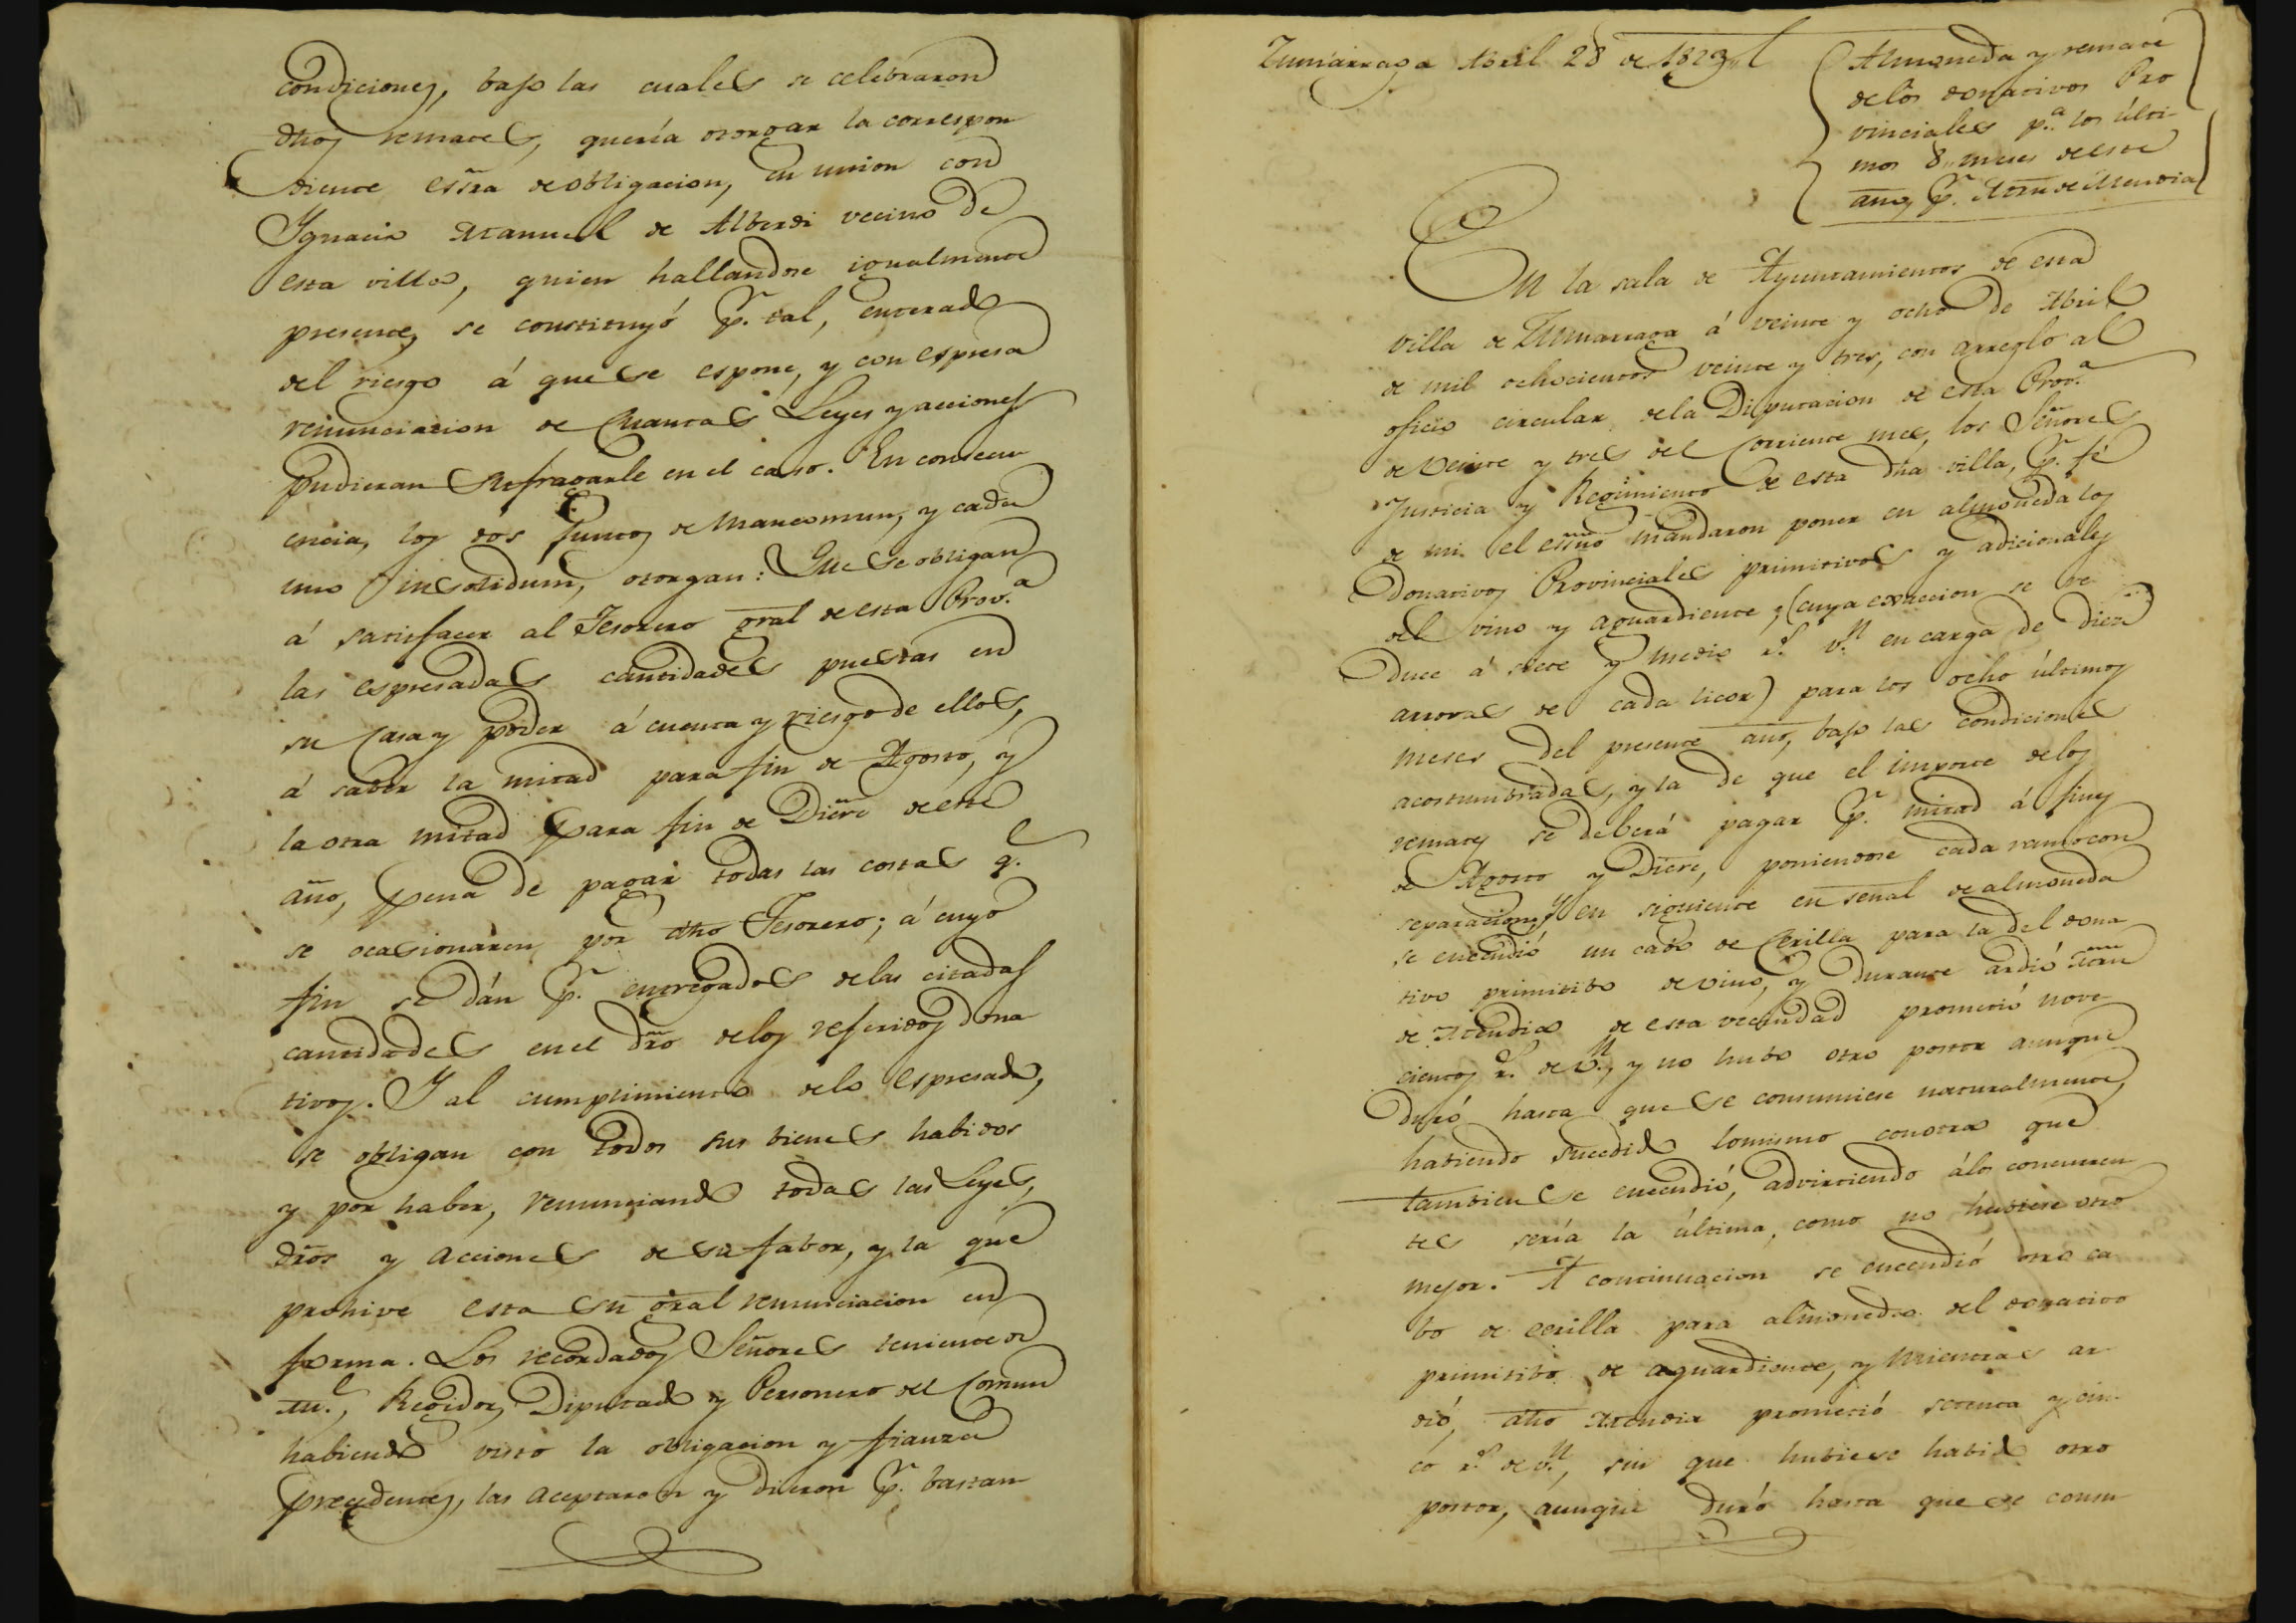 condiciones, bajo las cuales se celebraron
dhos remates, quería otorgar la correspon
diente essra de obligacion, en union con
Ignacio Manuel de Alberdi vecino de
esta villa, quien hallandose igualmente
presente, se constituyó pr. tal, enterado
del riesgo á que se espone, y con espresa
renunciacion de cuantas Leyes y acciones
pudieran sufragarle en el caso. En consecu
encia, los dos juntos de mancomun, y cada
uno insolidum, otorgan: Que se obligan
á satisfacer al Tesorero gral de esta Prov.a
las espresadas cantidades puestas en
su casa y poder á cuenta y riesgo de ellos,
á saber la mitad para fin de Agosto, y
la otra mitad para fin de Dicre de este
año, pena de pagar todas las costas q.e
se ocasionaren por dho Tesorero; á cuyo
fin se dán pr. entregados de las citadas
cantidades en el dro de los referidos dona
tivos. Y al cumplimiento de lo espresado,
se obligan con todos sus bienes habidos
y por haber, renunciando todas las Leyes,
dros y acciones de su fabor, y la que
prohive esta su gral renunciacion en
forma. Los recordados Señores teniente de
Al.e, Regidor, Diputado y Personero del Comun
habiendo visto la obligacion y fianza
precedentes, las aceptaron y dieron pr. bastan
Zumárraga Abril 28 de 1823
Almoneda y remate
de los donativos Pro
vinciales p.a los últi-
mos 8 meses de este
año, pr. Atru de Mendia
En la sala de Ayuntamientos de esta
villa de Zumarraga á veinte y ocho de Abril
de mil ochocientos veinte y tres, con arreglo al
oficio circular de la Diputacion de esta Prov.a
de veinte y tres del corriente mes, los Señores
Justicia y Regimiento de esta dha villa, pr. fé
de mi el essno mandaron poner en almoneda los
donativos Provinciales primitivos y adicionales
del vino y aguardiente, (cuya exaccion se re
duce á siete y medio r.s v.n en carga de diez
arrovas de cada licor) para los ocho últimos
meses del presente año, bajo las condiciones
acostumbradas, y la de que el importe de los
remates se deberá pagar pr. mitad á fines
de Agosto y Dicre, poniendose cada ramo con
separacion, y en siguiente en señal de almoneda
se encendió un cabo de cerilla para la del dona
tivo primitibo de vino, y durante ardió
de Mendia de esta vecindad prometió nove
cientos r.s de v.n, y no hubo otro postor aunque
duró hasta que se consumiese naturalmente,
habiendo sucedido lo mismo con otra que
tambien se encendió, advirtiendo á los concurren
tes sería la última, como no hubiese otro
mejor. A continuacion se encendió otro ca
bo de cerilla para almoneda del donativo
primitibo de aguardiente, y mientras ar
dió, dho Mendia prometió setenta y cin-
co r.s de v.n, sin que hubiese habido otro
postor, aunque duró hasta que se consu